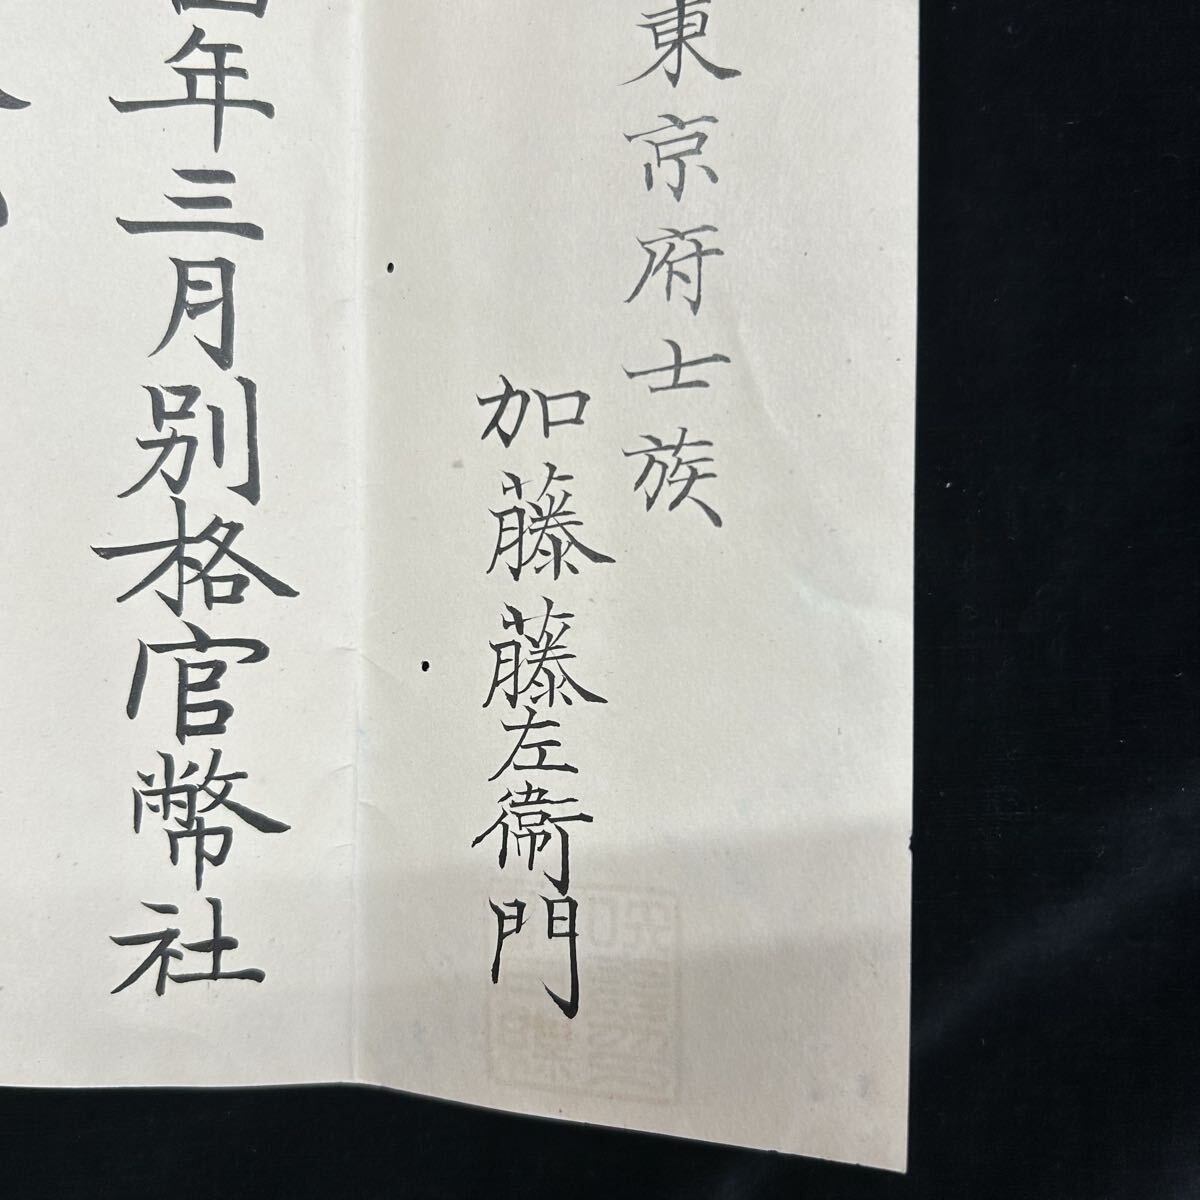 東京府士族
加藤藤左衛門
年三月別格官幣社